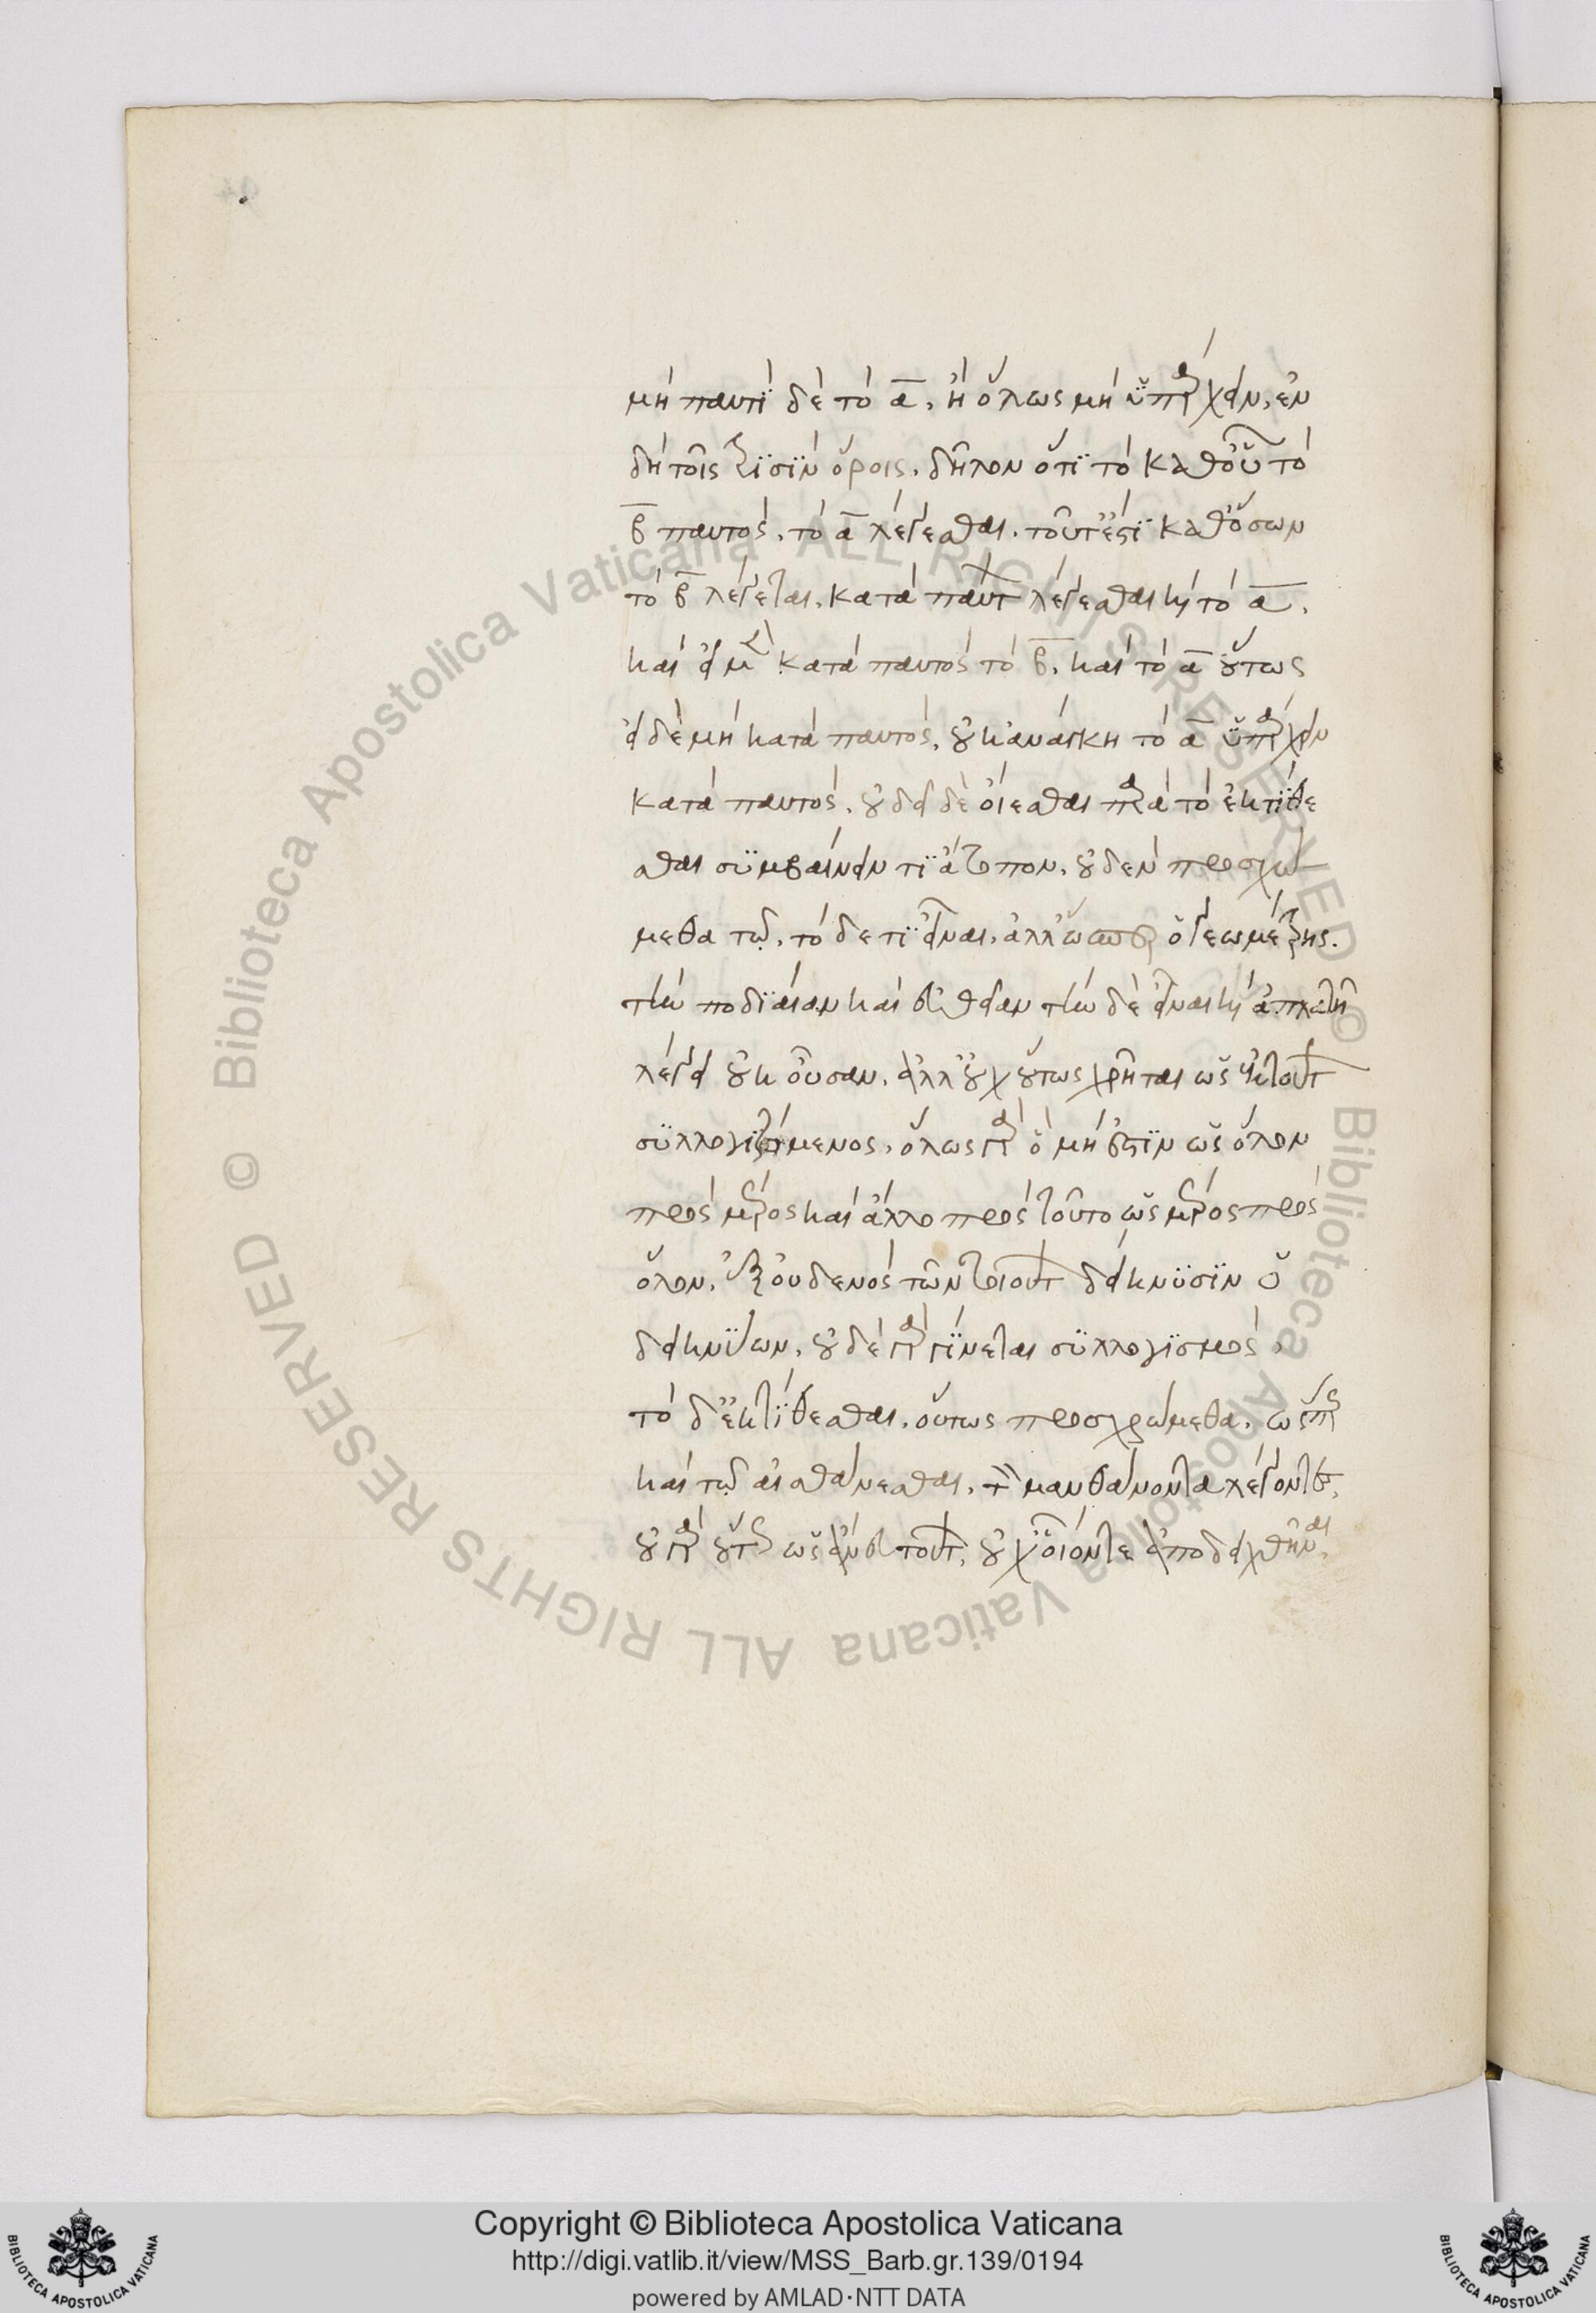 μὴ παντὶ δὲ τὸ α, ἢ ὅλως μὴ ὑπάρχειν, ἐν
δὴ τοῖς τρισὶν ὅροις, δῆλον ὅτι τὸ καθ' οὗ τὸ
β παντὸς, τὸ α λέγεσθαι. τοῦτ' ἔστι καθ' ὅσων
τὸ β λέγεται, κατὰ πάντων λέγεσθαι καὶ τὸ α,
καὶ εἰ μὲν κατὰ παντὸς τὸ β, καὶ τὸ α οὕτως
εἰ δὲ μὴ κατὰ παντὸς, οὐκ ἀνάγκη τὸ α ὑπάρχειν
κατὰ παντὸς. οὐ δεῖ δὲ οἴεσθαι παρὰ τὸ ἐκτίθε
σθαι συμβαίνειν τι ἄτοπον. οὐδὲν προσχρώ
μεθα τῷ, τὸ δέ τι εἶναι, ἀλλ' ὥσπερ ὁ γεωμέτρης.
τὴν ποδιαίαν καὶ εὐθεῖαν τὴν δὲ εἶναι καὶ ἀπλατῆ
λέγει οὐκ οὖσαν, ἀλλ' οὐχ οὕτως χρῆται ὡς ἐκ τούτων
συλλογιζόμενος, ὅλως γὰρ ὃ μή ἐστιν ὡς ὅλον
πρὸς μέρος καὶ ἄλλο πρὸς τοῦτο ὡς μέρος πρὸς
ὅλον, ἐξ οὐδενὸς τῶν τοιούτων δείκνυσιν ὁ
δεικνύων, οὐδὲ γὰρ γίνεται συλλογισμός,
τὸ δ' ἐκτίθεσθαι, οὕτως προσχρώμεθα, ὥσπερ
καὶ τῷ αἰσθάνεσθαι, τὸν μανθάνοντα λέγοντες,
οὐ γὰρ οὕτως ὡς ἄνευ τούτων, οὐχ οἷόν τε ἀποδειχθῆναι,
Copyright © Biblioteca Apostolica Vaticana
http://digi.vatlib.it/view/MSS_Barb.gr.139/0194
powered by AMLAD·NTT DATA
BIBLIOTECA APOSTOLICA VATICANA
BIBLIOTECA APOSTOLICA VATICANA
© Biblioteca Apostolica Vaticana ALL RIGHTS RESERVED
© Biblioteca Apostolica Vaticana ALL RIGHTS RESERVED